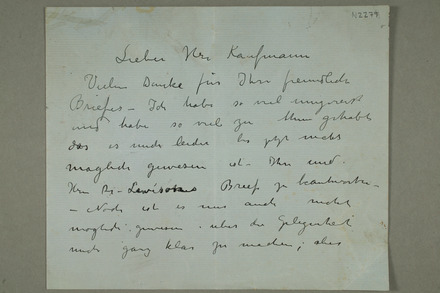 N2279
Lieber Herr Kaufmann
Vielen Danke für Ihre freundliche
Briefes – Ich habe so viel umgereist
und habe so viel zu thun gehabt
das es mich leider bis jetzt nicht
moglich gewesen ist – Ihr und
Herrn Brief zu beantworten –
– Noch ist es mir auch nicht
moglich gewesen über die Gelegenheit
mich ganz klar zu machen; aber